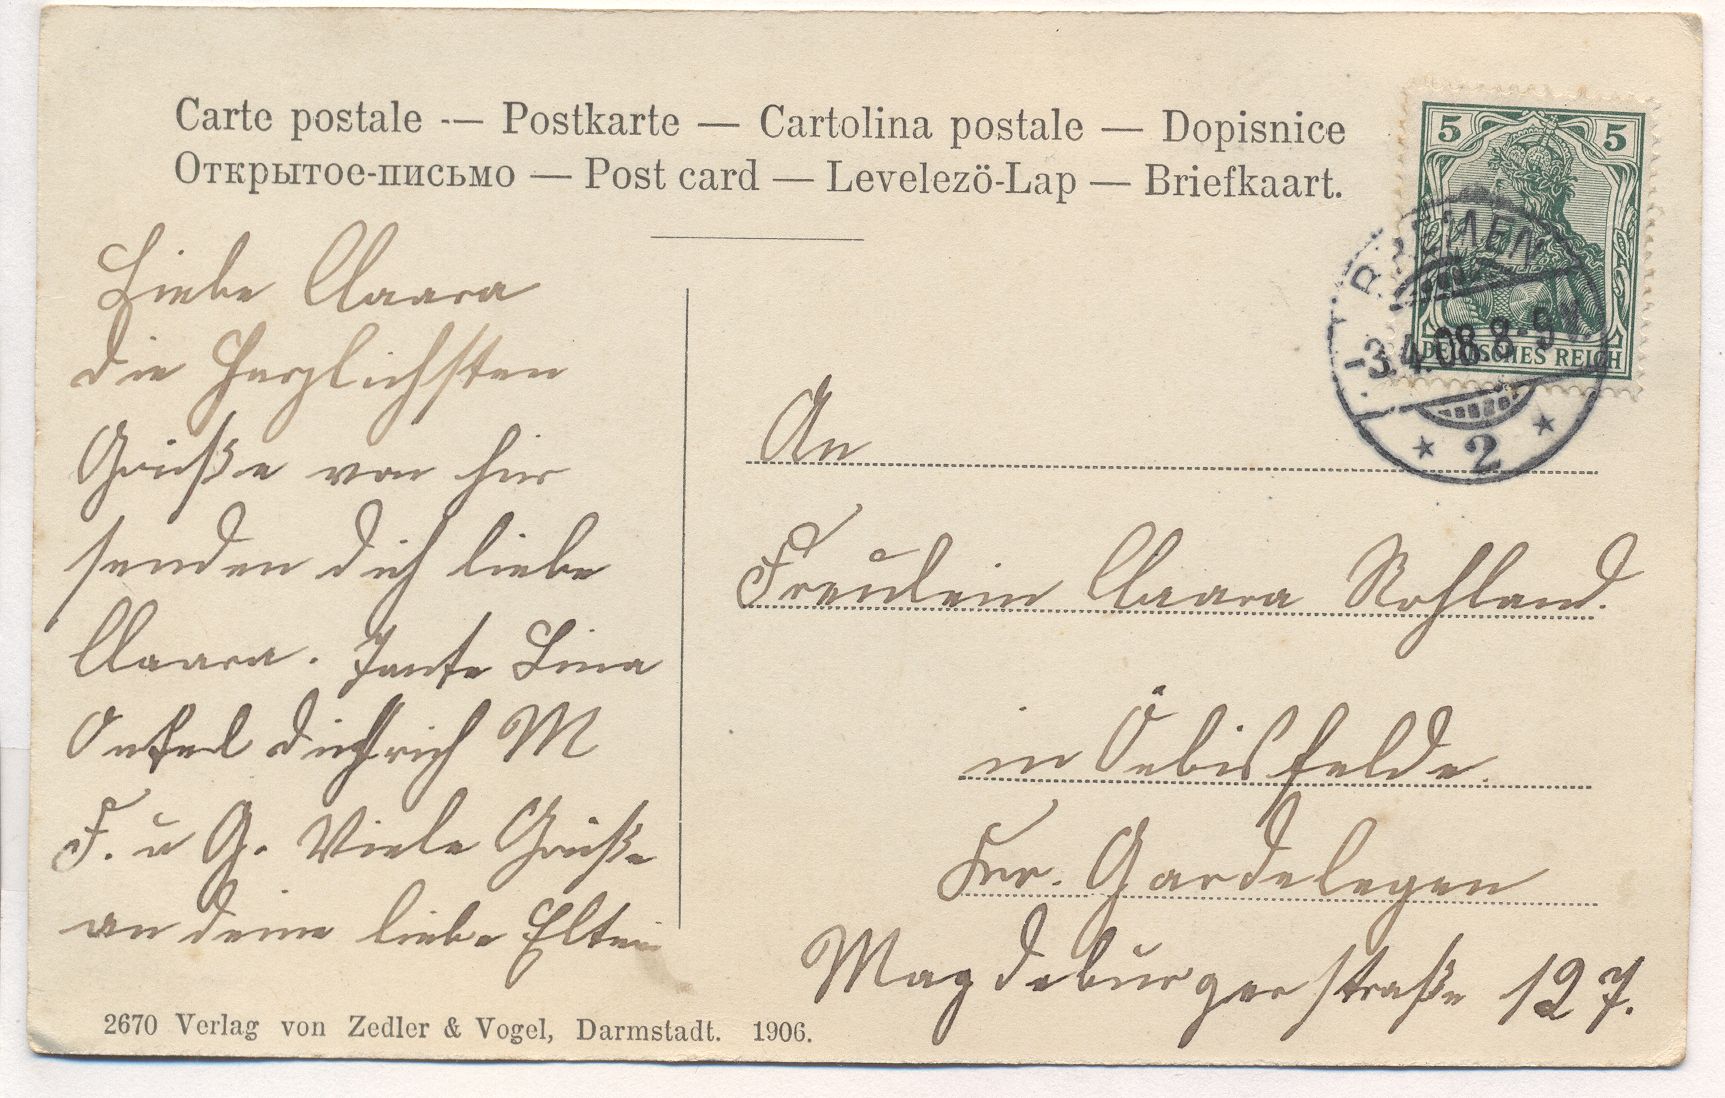 Carte postale -— Postkarte — Cartolina postale — Dopisnice
Открытое-письмо — Post card — Levelezö-Lap — Briefkaart.
5 5
DEUTSCHES REICH
BREMEN
-3.4.08.8-9V.
* 2 *
Liebe Claara
die Herzlichsten
Grüße von hir
senden dich liebe
Claara. Tante Lina
Onkel Diethrich M
F. u G. Viele Grüße
an deine liebe Eltern
An
Freulein Claara Rohland.
in Öebisfelde
Kr. Gardelegen
Magdeburgerstraße 127.
2670 Verlag von Zedler & Vogel, Darmstadt. 1906.